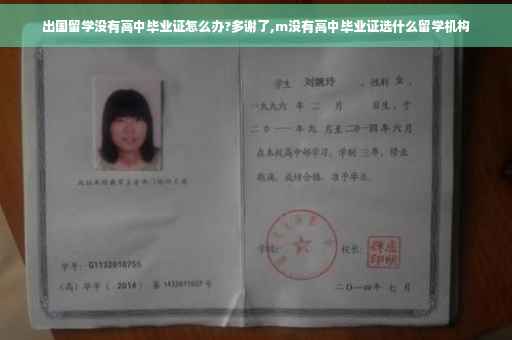 出国留学没有高中毕业证怎么办?多谢了,m没有高中毕业证选什么留学机构
学生 刘婉玲 ,性别 女 ,
一九九六 年 二 月 日生,于
二〇一一 年 九 月至 二〇一四 年 六 月
在本校高中部学习,学制 三 年,修业
期满,成绩合格,准予毕业。
学号: G1132010755
(高) 毕字 ( 2014 ) 第 1432011027 号
学校:
校长:
二〇一四年 七 月